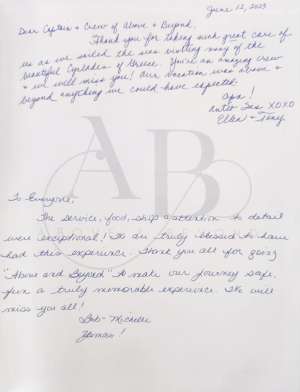 June 12, 2023
Dear Captain + Crew of Above & Beyond,
Thank you for taking such great care of
us as we sailed the seas visiting many of the
beautiful Cyclades of Greece. You're an amazing crew
+ we will miss you! Our vacation was above +
beyond anything we could have expected.
Opa!
XOXO
+ Tony
AB
To Everyone,
The service, food, ship & attention to detail
were exceptional! truly blessed to have
had this experience. Thank you all for going
"Above and Beyond" to make our journey safe,
fun & truly memorable experience. We will
miss you all!
Bob + Michelle